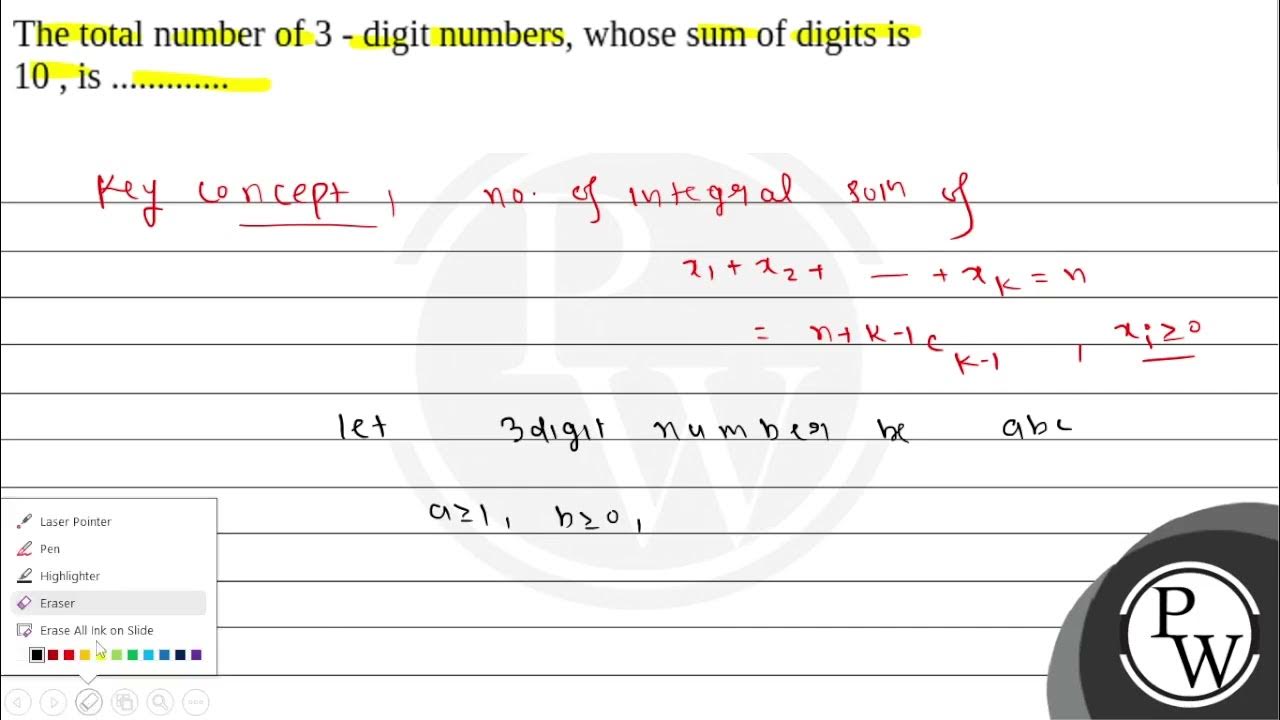 The total number of 3 - digit numbers, whose sum of digits is
10 , is .............
Key concept, no. of integral soln of
x₁ + x₂ + — + x_K = n
= n+K-1 C K-1 , xᵢ ≥ 0
let 3digit number be abc
a≥1, b≥0,
Laser Pointer
Pen
Highlighter
Eraser
Erase All Ink on Slide
P
W
P
W